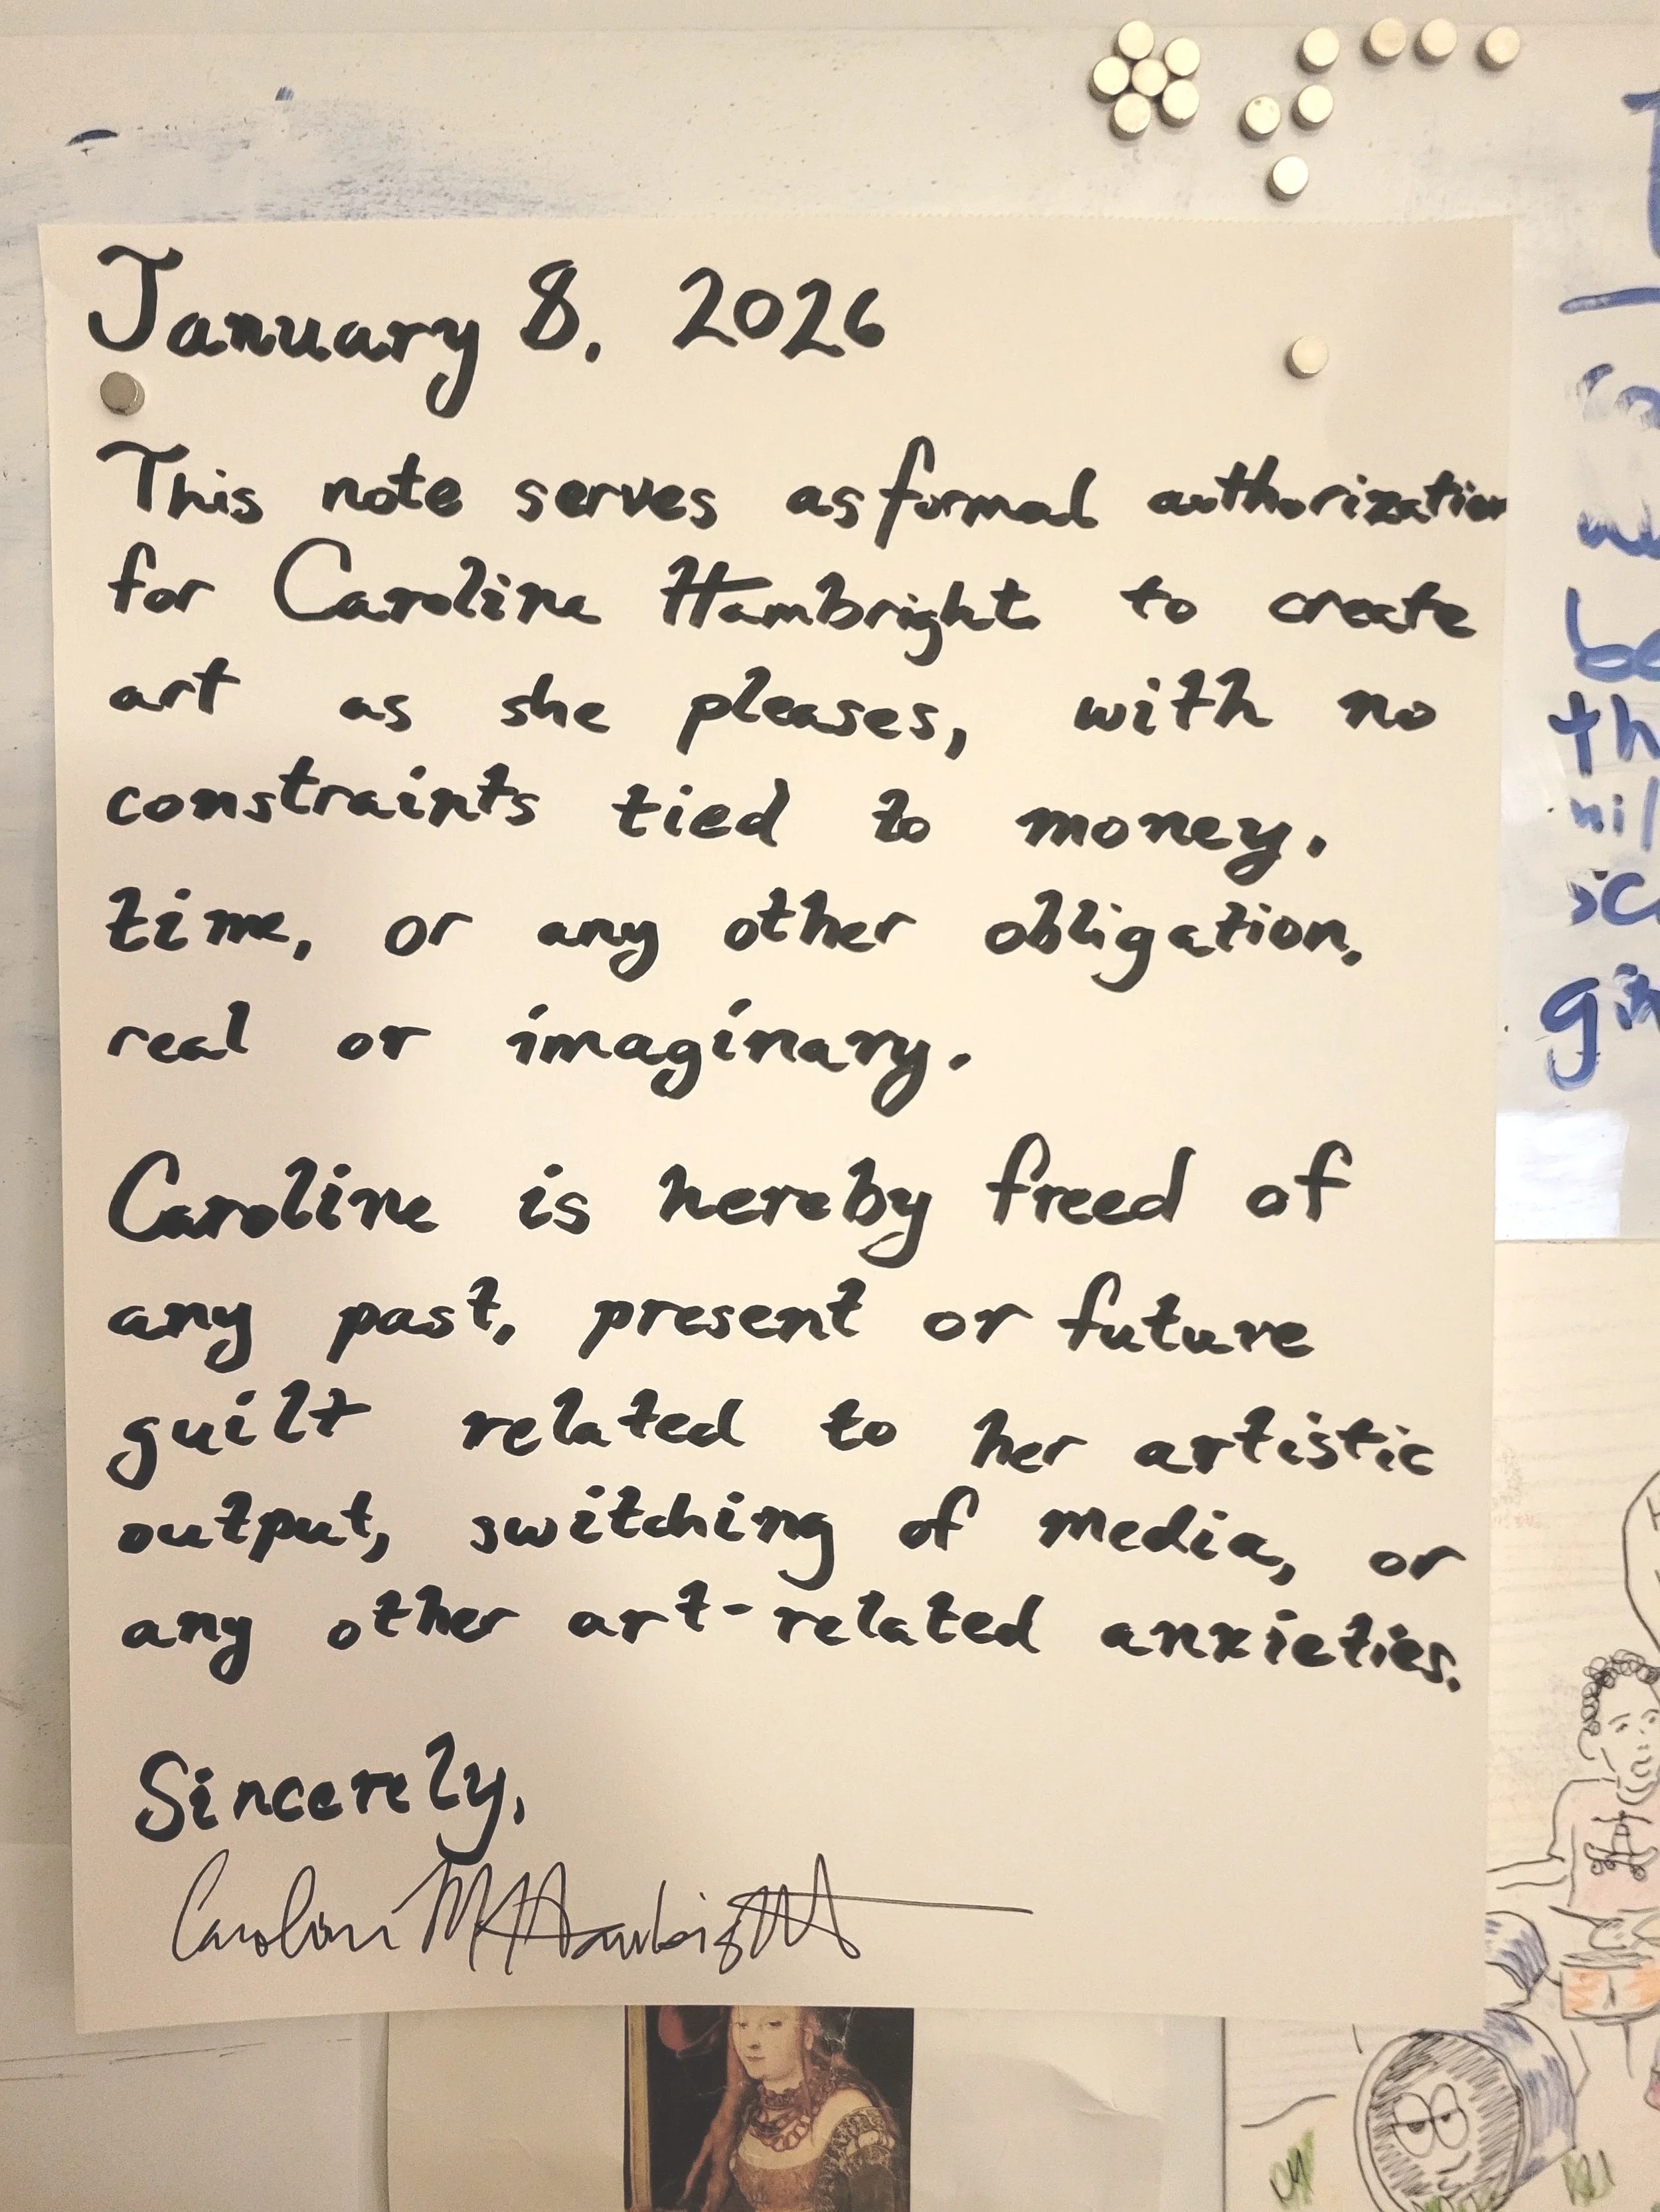 January 8, 2026
This note serves as formal authorization
for Caroline Hambright to create
art as she pleases, with no
constraints tied to money,
time, or any other obligation,
real or imaginary.
Caroline is hereby freed of
any past, present or future
guilt related to her artistic
output, switching of media, or
any other art-related anxieties.
Sincerely,
Caroline M Hambright
be
th
gi